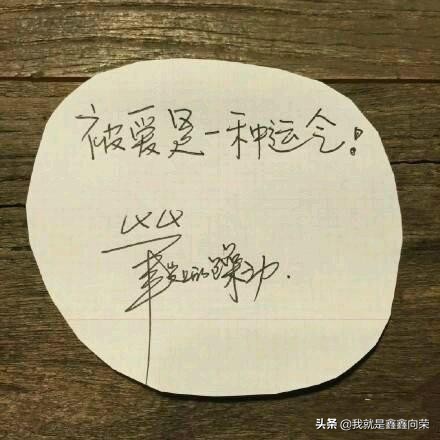 被爱是一种运气!
的躁动.
头条 @我就是鑫鑫向荣